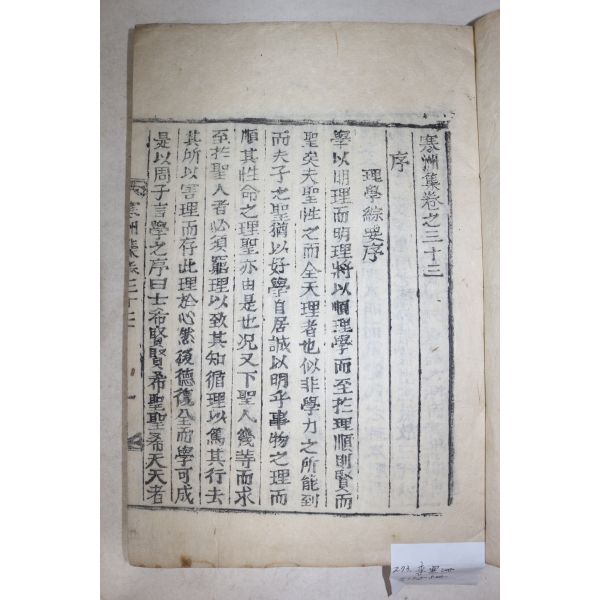 寒洲集卷之三十三
序
理學綜要序
學以明理而明理將以順理學而至於理順則賢而
聖矣夫聖性之而全天理者也似非學力之所能到
而夫子之聖猶以好學自居誠以明乎事物之理而
順其性命之理聖亦由是也况又下聖人幾等而求
至於聖人者必須窮理以致其知循理以篤其行去
其所以害理而存此理於心然後德復全而學可成
是以周子言學之序曰士希賢賢希聖聖希天天者
寒洲集卷三十三
一
273